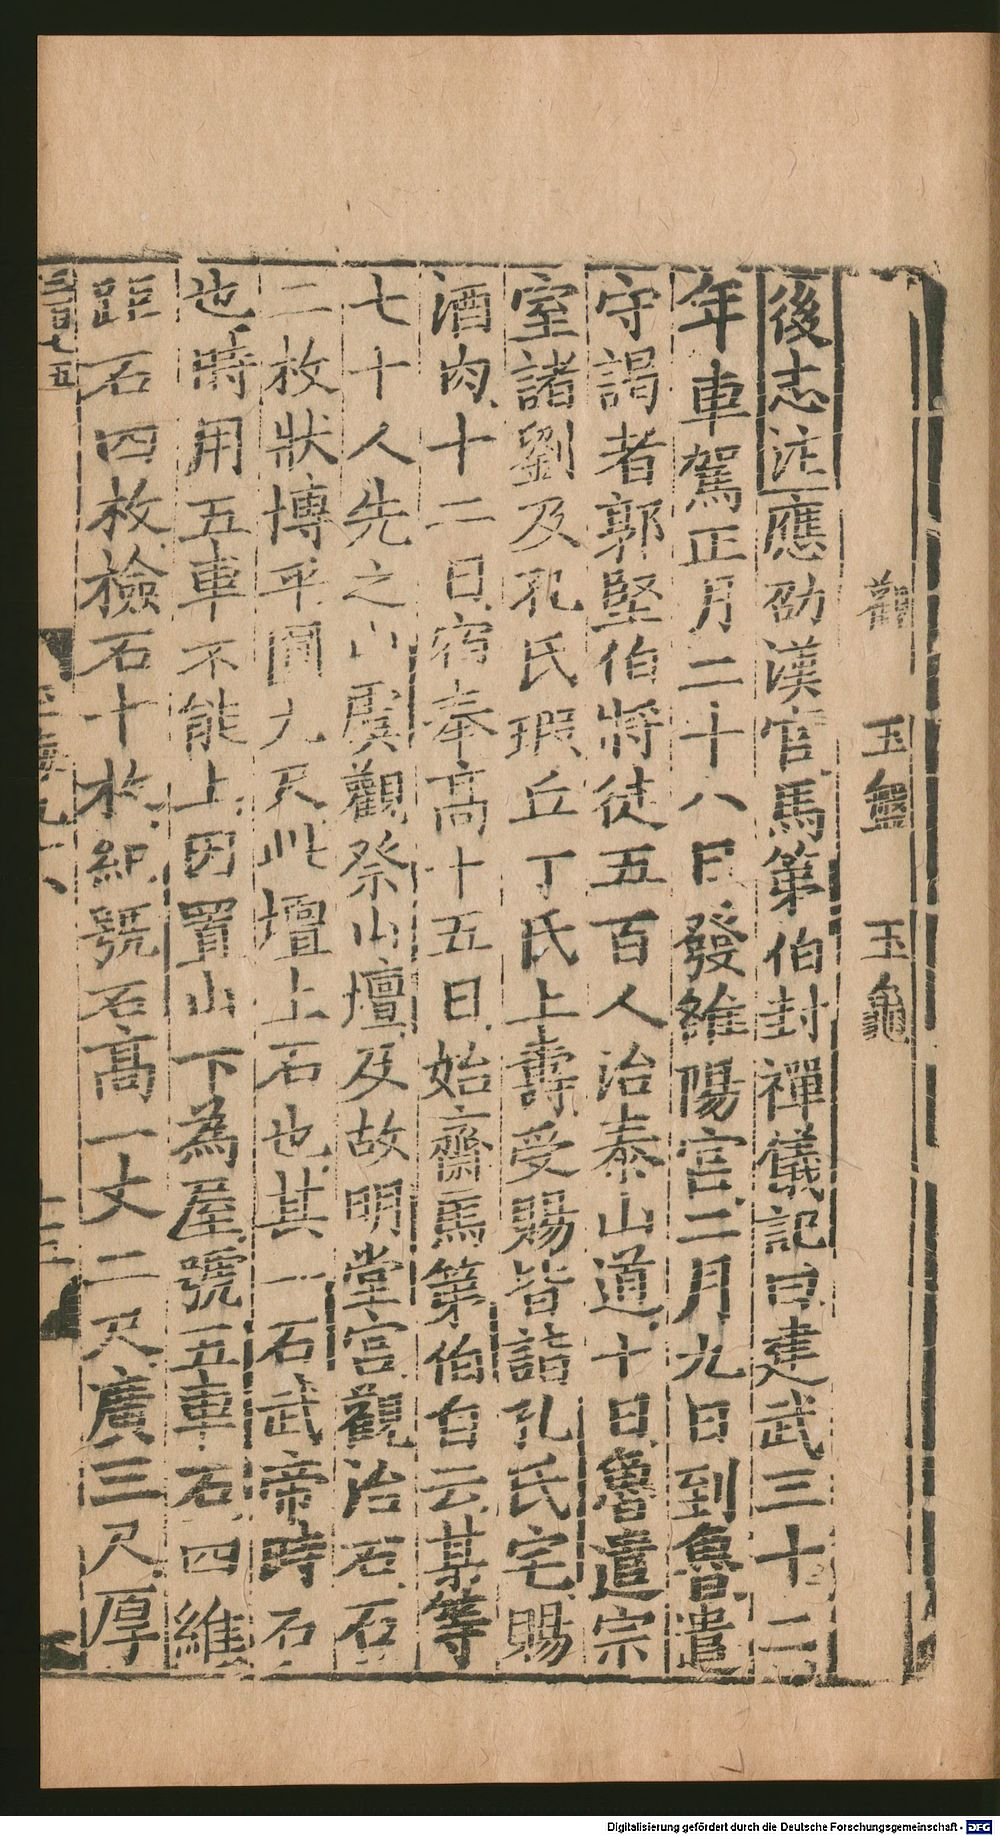 觀 玉盤 玉龜
後志注應劭漢官馬第伯封禪儀記曰建武三十二
年車駕正月二十八日發雒陽宫二月九日到魯遣
守謁者郭堅伯將徒五百人治泰山道十日魯遣宗
室諸劉及孔氏瑕丘丁氏上壽受賜皆詣孔氏宅賜
酒肉十二日宿奉高十五日始齋馬第伯自云某等
七十人先之山虞觀祭山壇及故明堂宫觀治石石
二枚狀博平圓九尺此壇上石也其一石武帝時石
也時用五車不能上因置山下為屋號五車石四維
距石四枚檢石十枚紀號石高一丈二尺廣三尺厚
三百七五
Digitalisierung gefördert durch die Deutsche Forschungsgemeinschaft - DFG